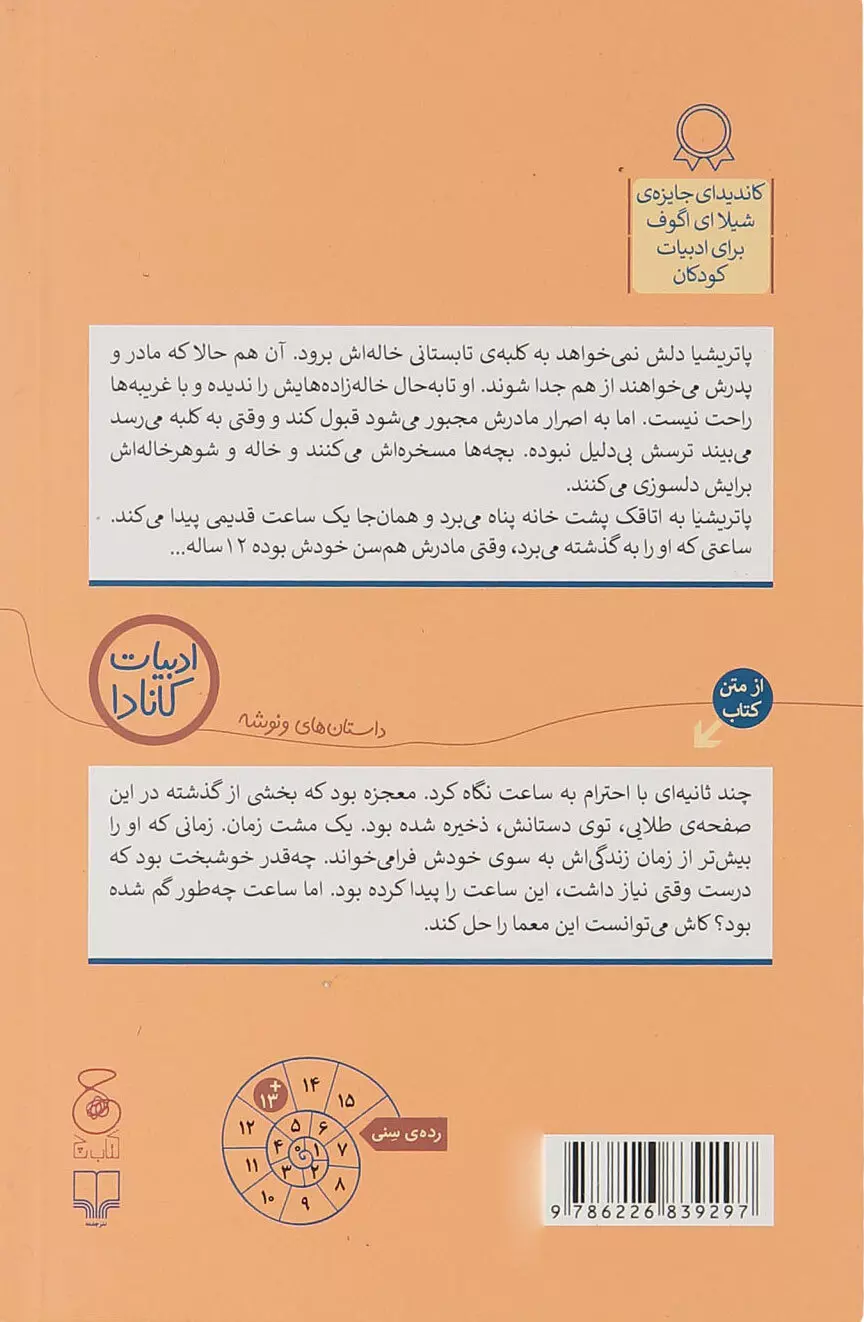 کاندیدای جایزه‌ی
شیلا ای اگوف
برای ادبیات
کودکان
پاتریشیا دلش نمی‌خواهد به کلبه‌ی تابستانی خاله‌اش برود. آن هم حالا که مادر و
پدرش می‌خواهند از هم جدا شوند. او تابه‌حال خاله‌زاده‌هایش را ندیده و با غریبه‌ها
راحت نیست. اما به اصرار مادرش مجبور می‌شود قبول کند و وقتی به کلبه می‌رسد
می‌بیند ترسش بی‌دلیل نبوده. بچه‌ها مسخره‌اش می‌کنند و خاله و شوهرخاله‌اش
برایش دلسوزی می‌کنند.
پاتریشیا به اتاقک پشت خانه پناه می‌برد و همان‌جا یک ساعت قدیمی پیدا می‌کند.
ساعتی که او را به گذشته می‌برد، وقتی مادرش هم‌سن خودش بوده ۱۲ساله...
ادبیات
کانادا
داستان‌های ونوشه
از متن
کتاب
چند ثانیه‌ای با احترام به ساعت نگاه کرد. معجزه بود که بخشی از گذشته در این
صفحه‌ی طلایی، توی دستانش، ذخیره شده بود. یک مشت زمان. زمانی که او را
بیش‌تر از زمان زندگی‌اش به سوی خودش فرامی‌خواند. چه‌قدر خوشبخت بود که
درست وقتی نیاز داشت، این ساعت را پیدا کرده بود. اما ساعت چه‌طور گم شده
بود؟ کاش می‌توانست این معما را حل کند.
رده‌ی سِنی
۰ ۱ ۲ ۳ ۴ ۵ ۶ ۷ ۸ ۹ ۱۰ ۱۱ ۱۲ ۱۳+ ۱۴ ۱۵
کتاب چ
نشرچشمه
9 786226 839297